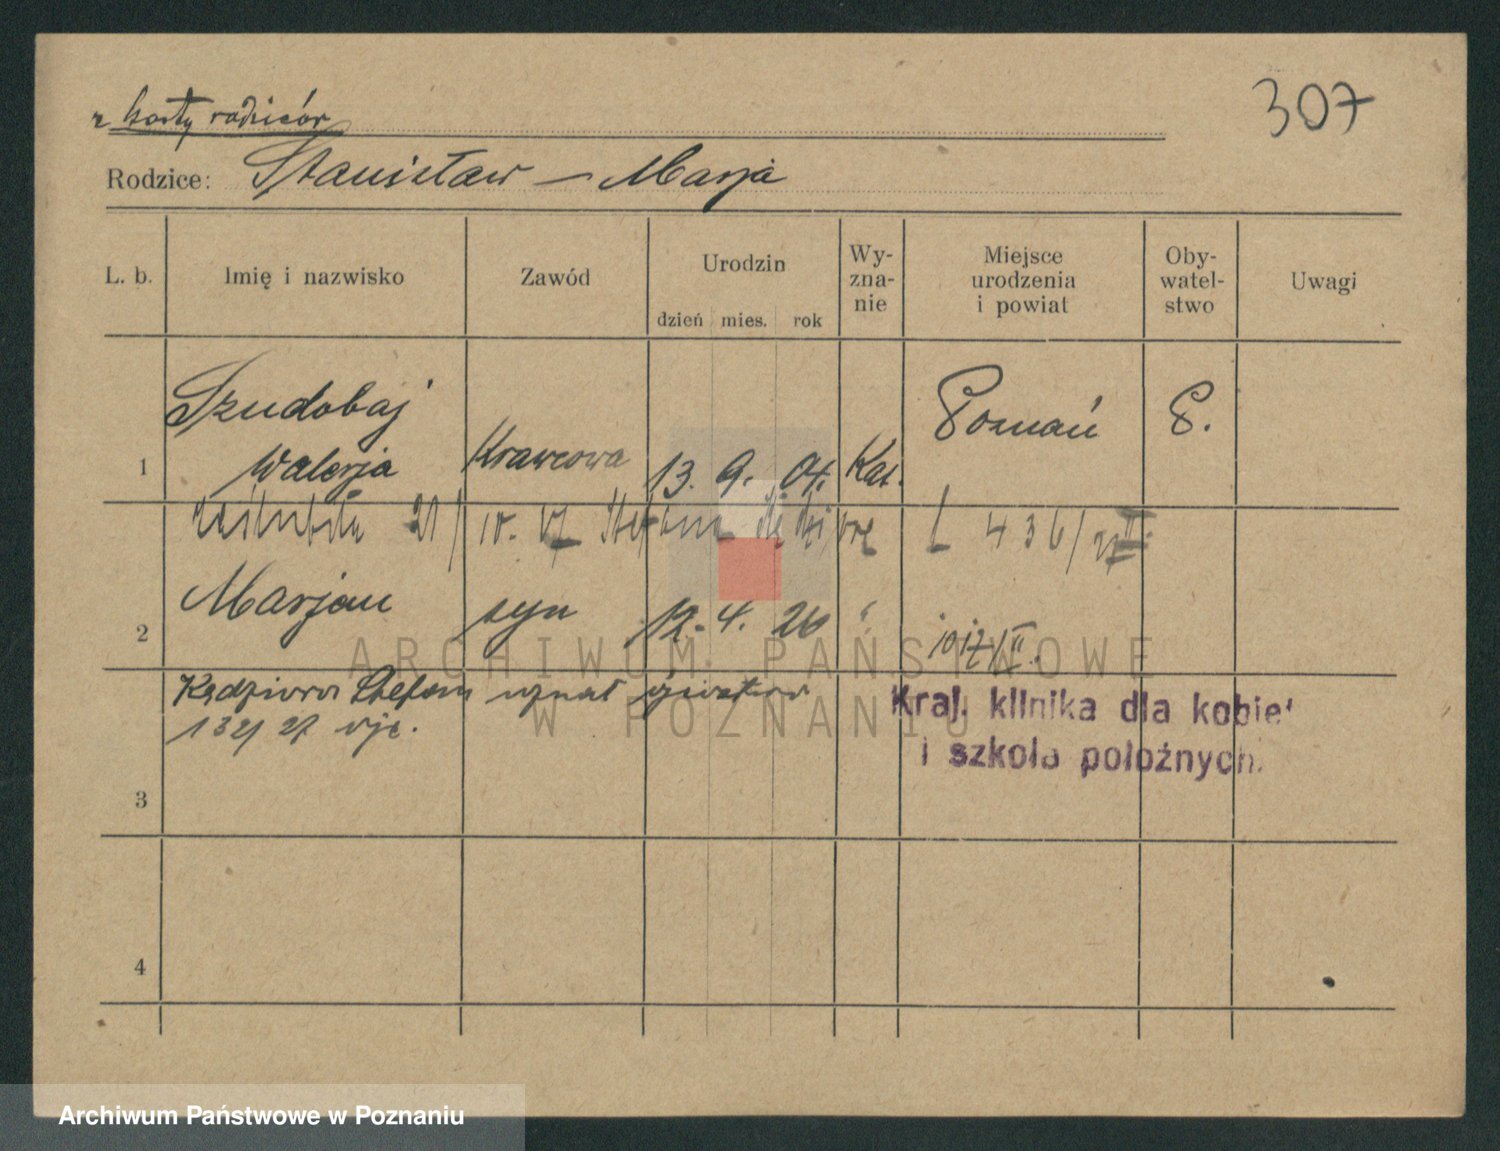 z karty rodziców
307
Rodzice: Stanisław — Marja
L. b. Imię i nazwisko Zawód Urodzin dzień mies. rok Wy-zna-nie Miejsce urodzenia i powiat Oby-watel-stwo Uwagi
Szudobaj Poznań P.
1 Walerja Krawcowa 13. 9. 04. Kat.
zaślubiła 21/IV. 27 Stefana Kędziorę L 436/27
2 Marjan syn 12. 4. 26 "
Kędziora Stefan uznał
132/27
Kraj. klinika dla kobiet
i szkoła położnych.
3
4
ARCHIWUM PAŃSTWOWE
W POZNANIU
Archiwum Państwowe w Poznaniu